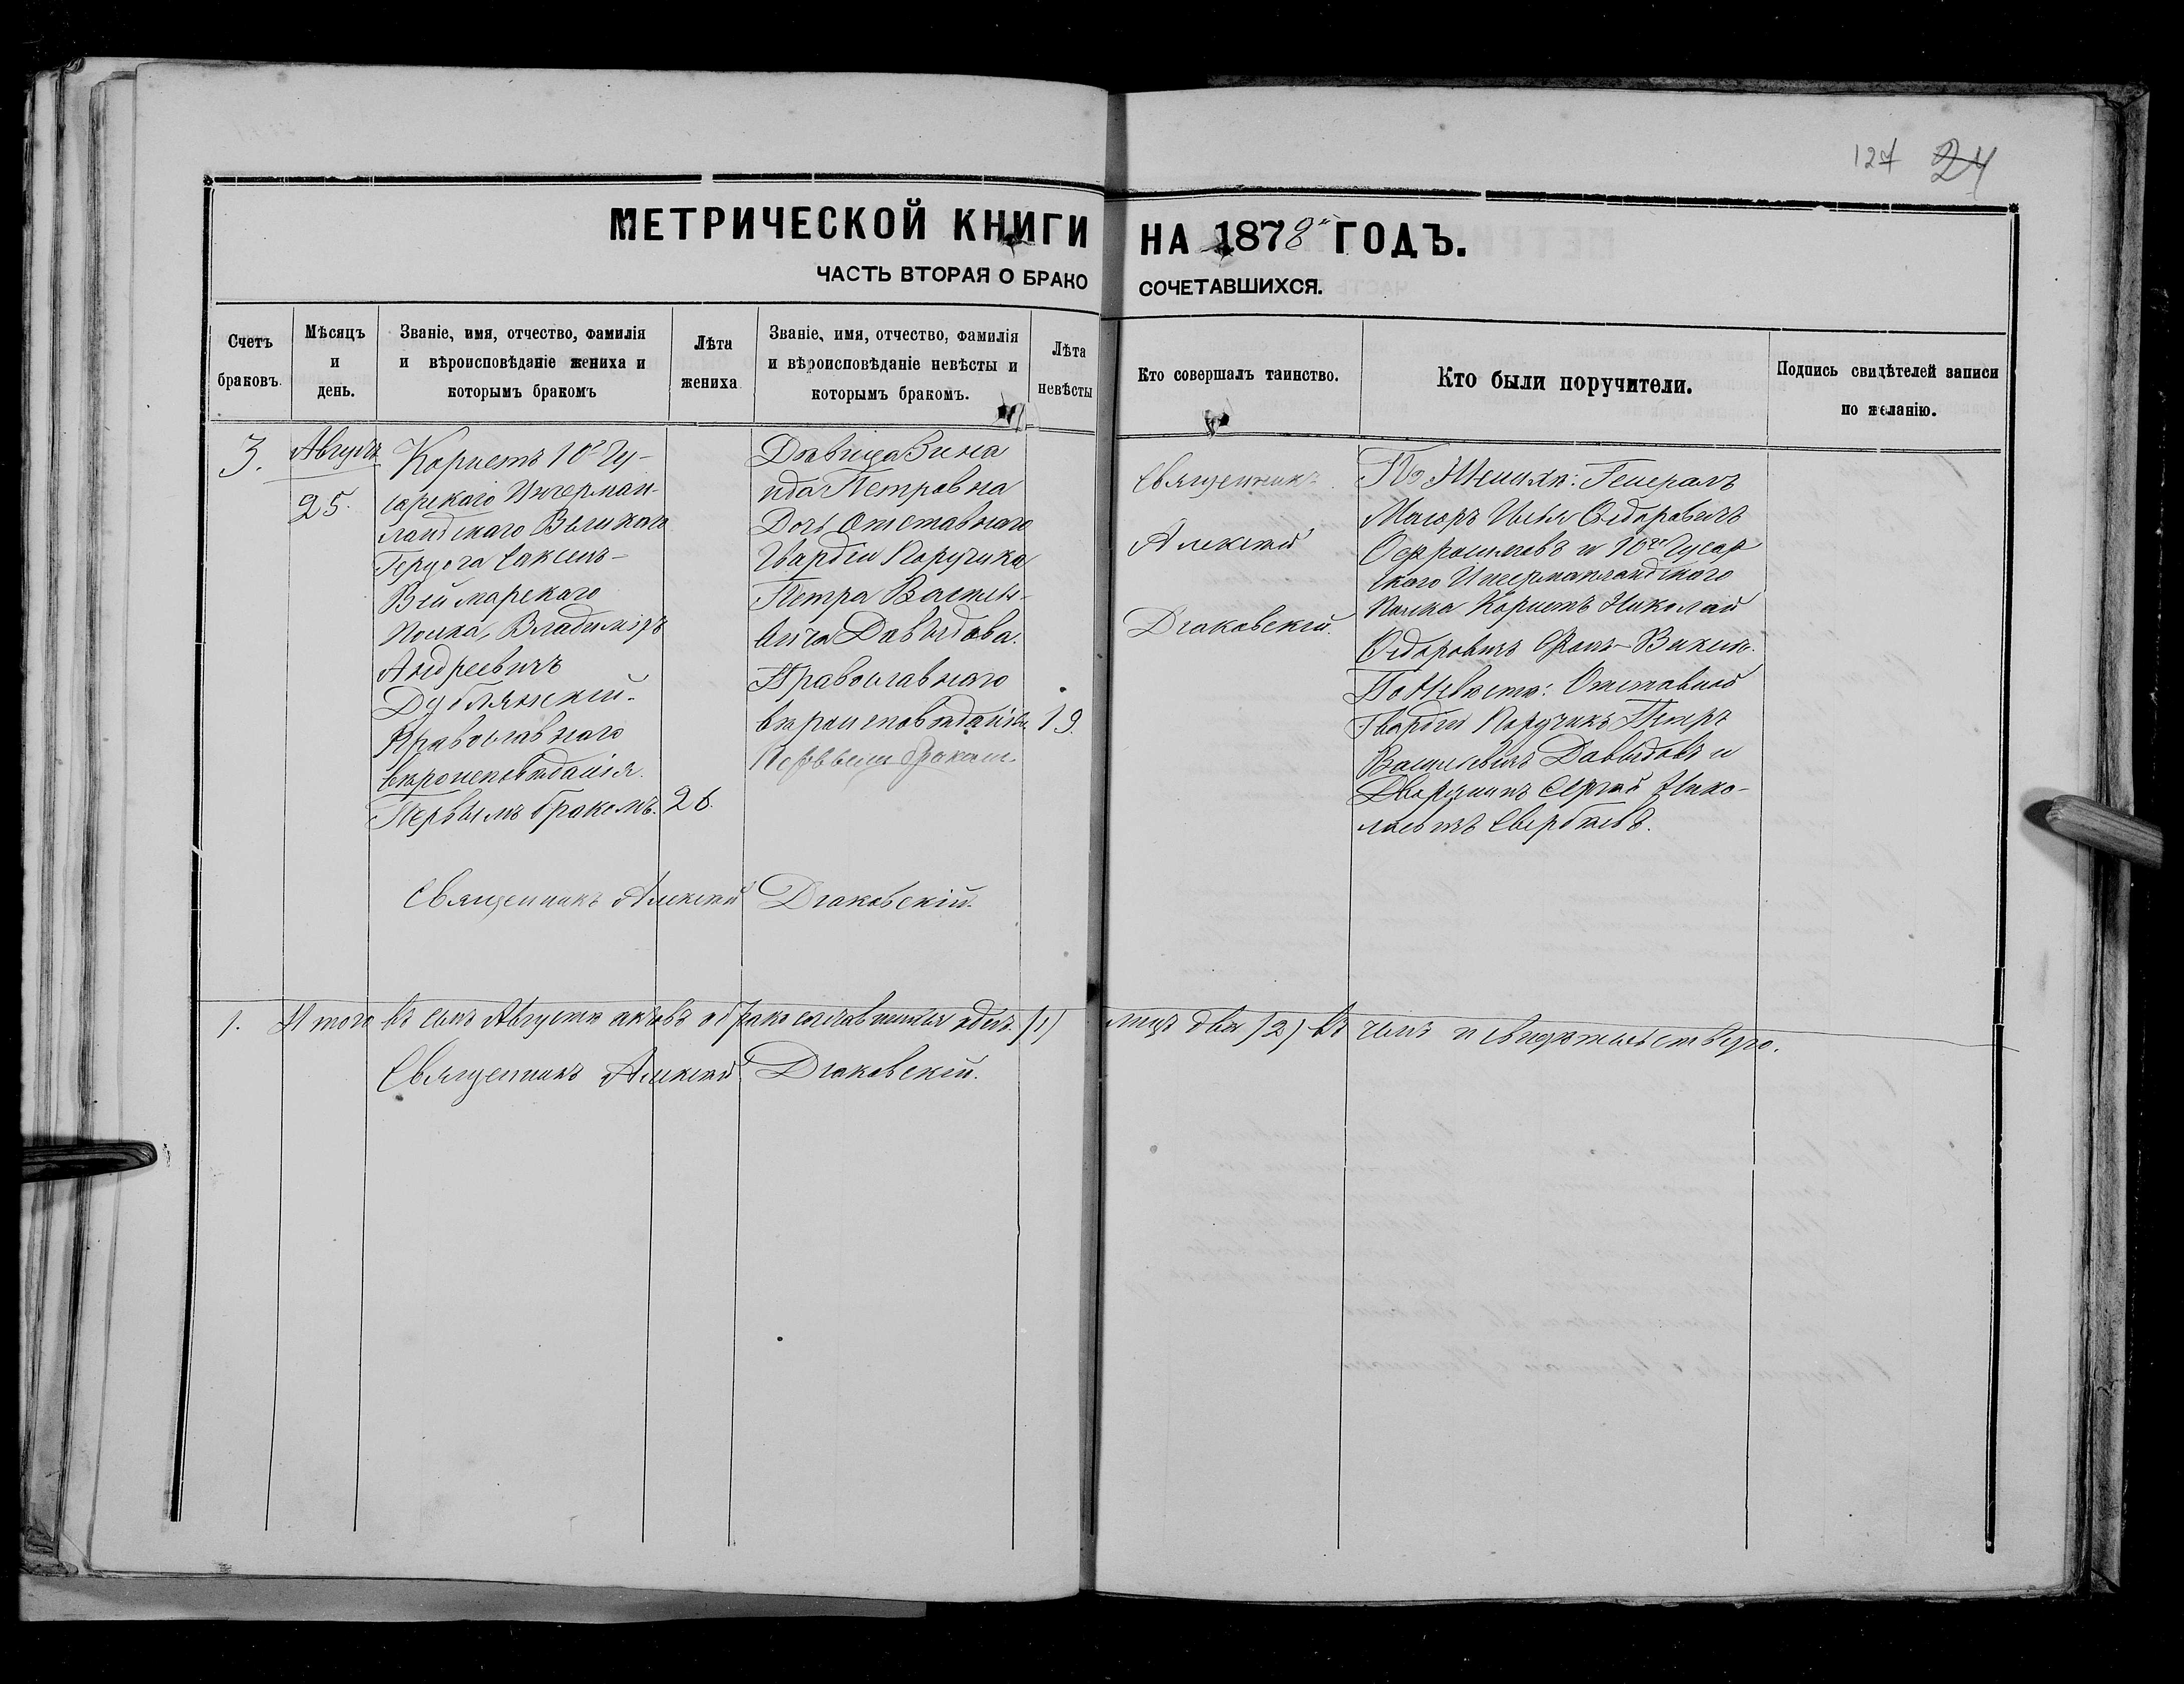 127 24
МЕТРИЧЕСКОЙ КНИГИ НА 1878й ГОДЪ.
ЧАСТЬ ВТОРАЯ О БРАКОСОЧЕТАВШИХСЯ.
Счетъ браковъ.
Мѣсяцъ и день.
Званіе, имя, отчество, фамилія и вѣроисповѣданіе жениха и которымъ бракомъ
Лѣта жениха
Званіе, имя, отчество, фамилія и вѣроисповѣданіе невѣсты и которымъ бракомъ.
Лѣта невѣсты
Кто совершалъ таинство.
Кто были поручители.
Подпись свидѣтелей записи по желанію.
3.
Августъ
25.
Корнетъ 10го Гу-
сарскаго Ингерман-
ландскаго Великаго
Герцога Саксенъ-
Веймарскаго
Полка, Владиміръ
Андреевичъ
Дублянскій.
Православнаго
вѣроисповѣданія.
Первымъ бракомъ.
26.
Дѣвица Зина
ида Петровна
Дочь Отставнаго
Гвардіи Поручика
Петра Василь-
вича Давыдова.
Православнаго
вѣроисповѣданія.
Первымъ бракомъ.
19.
Священникъ
Алексѣй
Дьяковскій.
По Женихѣ: Генералъ
Маіоръ Илья Ѳедоровичъ
и 10го Гусар
скаго Ингерманландскаго
Полка Корнетъ Николай
Ѳедоровичъ Фонъ-
По Невѣстѣ: Отставной
Гвардіи Поручикъ Петръ
Васильевичъ Давыдовъ и
Дворянинъ Сергѣй Нико-
лаевичъ Свербѣевъ.
Священникъ Алексѣй Дьяковскій.
1. Итого въ семъ Августѣ актовъ о бракосочетавшихся одинъ /1/ лицъ два /2/ въ чемъ и свидѣтельствую.
Священникъ Алексѣй Дьяковскій.